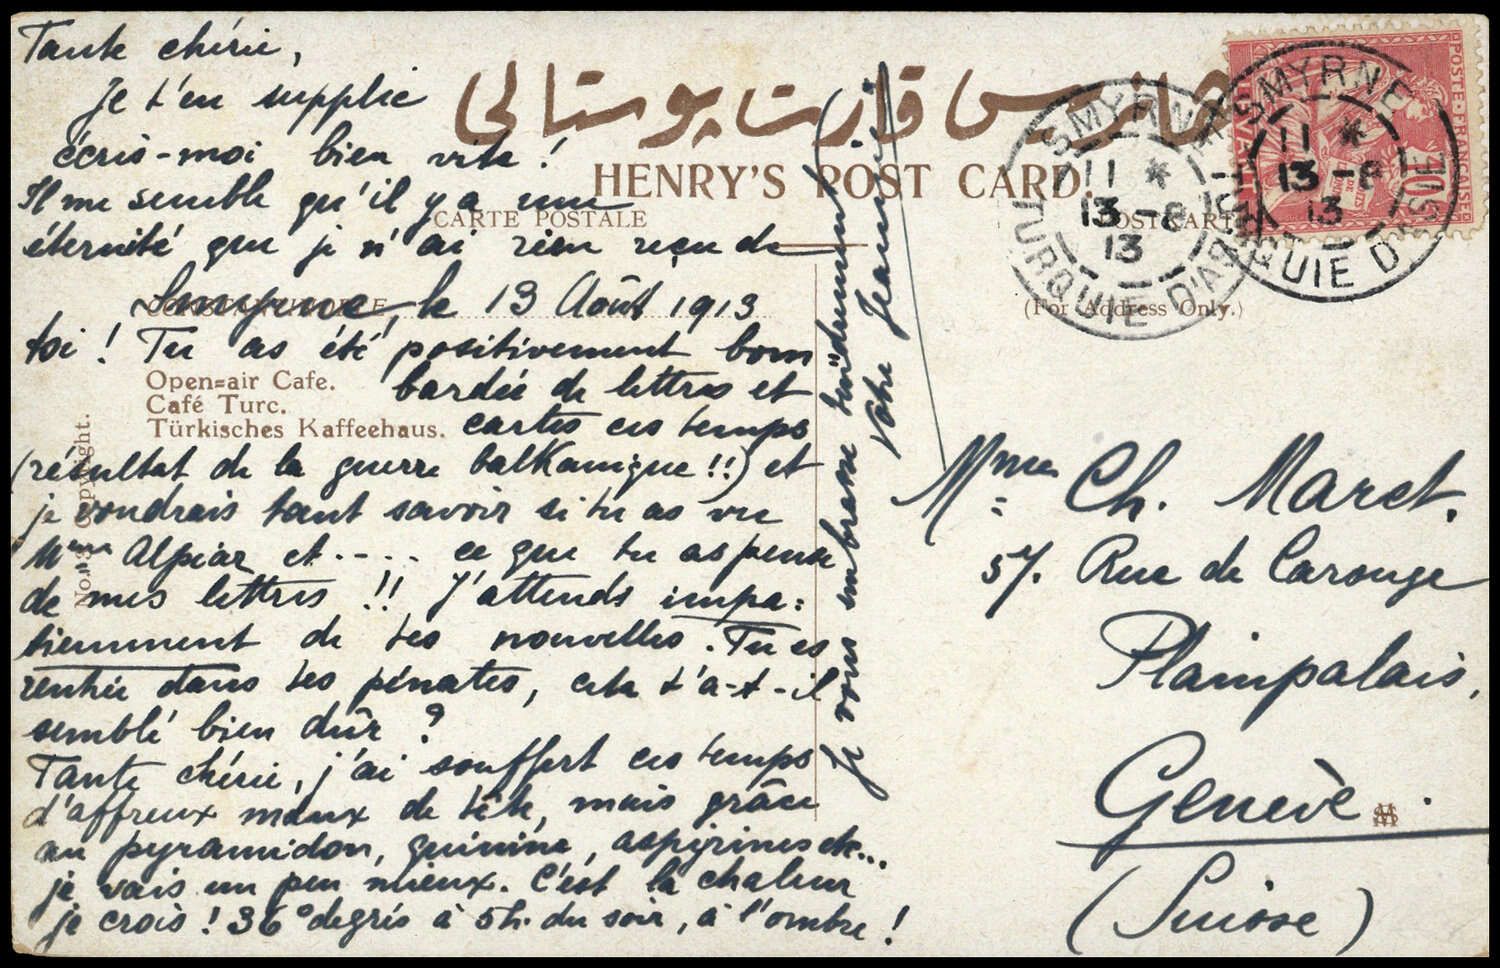 Tante chérie,
Je t'en supplie
écris-moi bien vite !
Il me semble qu'il y a une
éternité que je n'ai rien reçu de
Smyrne, le 13 Août 1913
toi ! Tu as été positivement bom
bardée de lettres et
cartes ces temps
(résultat de la guerre balkanique !!) et
je voudrais tant savoir si tu as vu
Mme Alpiar et .... ce que tu as pensé
de mes lettres !! J'attends impa=
tiemment de tes nouvelles. Tu es
rentrée dans tes pénates, cela t'a-t-il
semblé bien dûr ?
Tante chérie, j'ai souffert ces temps
d'affreux maux de tête, mais grâce
au pyramidon, quinine, aspirines etc...
je vais un peu mieux. C'est la chaleur
je crois ! 36° degrés à 5h. du soir, à l'ombre !
je vous embrasse "tendrement"
Votre Jeanne
هانريس قارت پوستالى
HENRY'S POST CARD.
CARTE POSTALE
POSTCARTE
CONSTANTINOPLE
(For Address Only.)
Open=air Cafe.
Café Turc.
Türkisches Kaffeehaus.
Copyright.
SMYRNE
11 *
13 -8
13
TURQUIE D'ASIE
SMYRNE
11 *
13 -8
13
TURQUIE D'ASIE
POSTE FRANÇAISE
LEVANT
10
Mme Ch. Maret.
57. Rue de Carouge
Plainpalais,
Genève.
(Suisse)